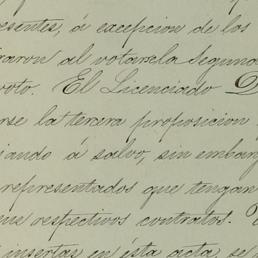 resentes, á excepcion de los
raron al votarela Segund
voto. El Licenciado D
rse la tercera proposicion
jando á salvo, sin embarg
representados que tengan
us respectivos contratos.
insertas en ésta acta, se